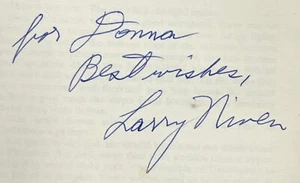 for Donna
Best wishes,
Larry Niven